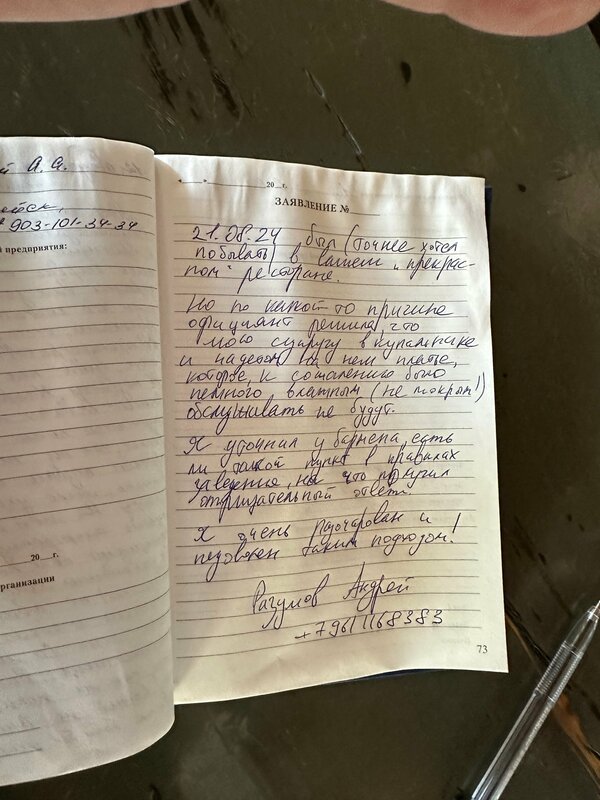 й А. А.
903-101-34-34
й предприятия:
20 г.
рганизации
« » 20 г.
ЗАЯВЛЕНИЕ №
21.08.24 был (точнее хотел
побывать) в вашем „прекрас-
ном" ресторане.
Но по какой то причине
официант решила, что
мою супругу в купальнике
и надетом на нем платье,
которое, к сожалению было
немного влажным (не мокрым!)
обслуживать не будут.
Я уточнил у бармена, есть
ли такой пункт в правилах
заведения, на что получил
отрицательный ответ.
Я очень разочарован и
недоволен таким подходом!
Разумов Андрей
+79611168383
73